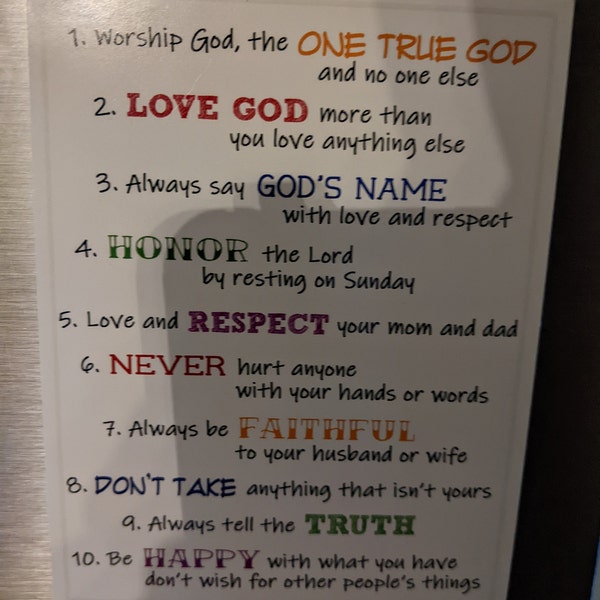 1. Worship God, the ONE TRUE GOD
and no one else
2. LOVE GOD more than
you love anything else
3. Always say GOD'S NAME
with love and respect
4. HONOR the Lord
by resting on Sunday
5. Love and RESPECT your mom and dad
6. NEVER hurt anyone
with your hands or words
7. Always be FAITHFUL
to your husband or wife
8. DON'T TAKE anything that isn't yours
9. Always tell the TRUTH
10. Be HAPPY with what you have
don't wish for other people's things